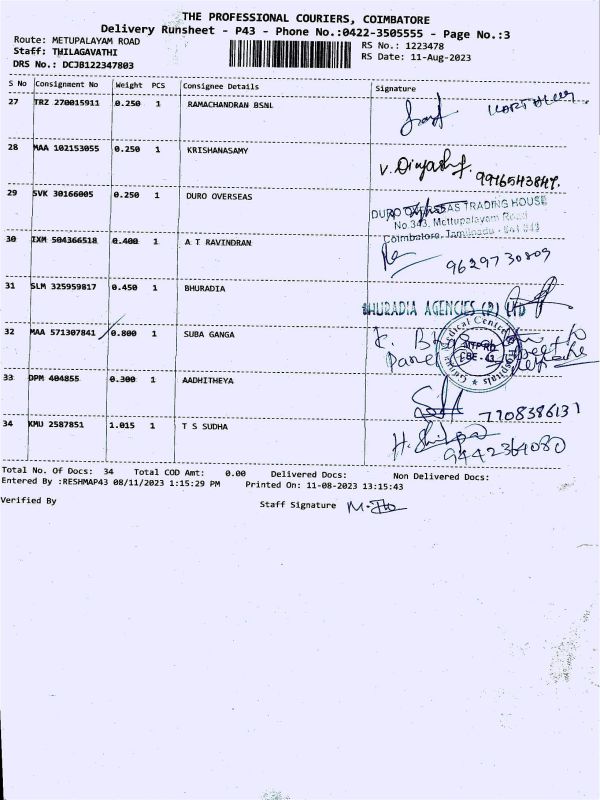 THE PROFESSIONAL COURIERS, COIMBATORE
Delivery Runsheet - P43 - Phone No.:0422-3505555 - Page No.:3
Route: METUPALAYAM ROAD RS No.: 1223478
Staff: THILAGAVATHI RS Date: 11-Aug-2023
DRS No.: DCJB122347803
S No Consignment No Weight PCS Consignee Details Signature
27 TRZ 270015911 0.250 1 RAMACHANDRAN BSNL
28 MAA 102153055 0.250 1 KRISHANASAMY
9976543847.
29 SVK 30166005 0.250 1 DURO OVERSEAS
DURO OVERSEAS TRADING HOUSE
No.343, Mettupalayam Road
Coimbatore, Tamilnadu - 641 043
30 IXM 504366518 0.400 1 A T RAVINDRAN
9629730809
31 SLM 325959817 0.450 1 BHURADIA
BHURADIA AGENCIES (P) LTD
32 MAA 571307841 0.800 1 SUBA GANGA
33 DPM 404855 0.300 1 AADHITHEYA
7708386131
34 KMU 2587851 1.015 1 T S SUDHA
9442364080
Total No. Of Docs: 34 Total COD Amt: 0.00 Delivered Docs: Non Delivered Docs:
Entered By :RESHMAP43 08/11/2023 1:15:29 PM Printed On: 11-08-2023 13:15:43
Verified By Staff Signature